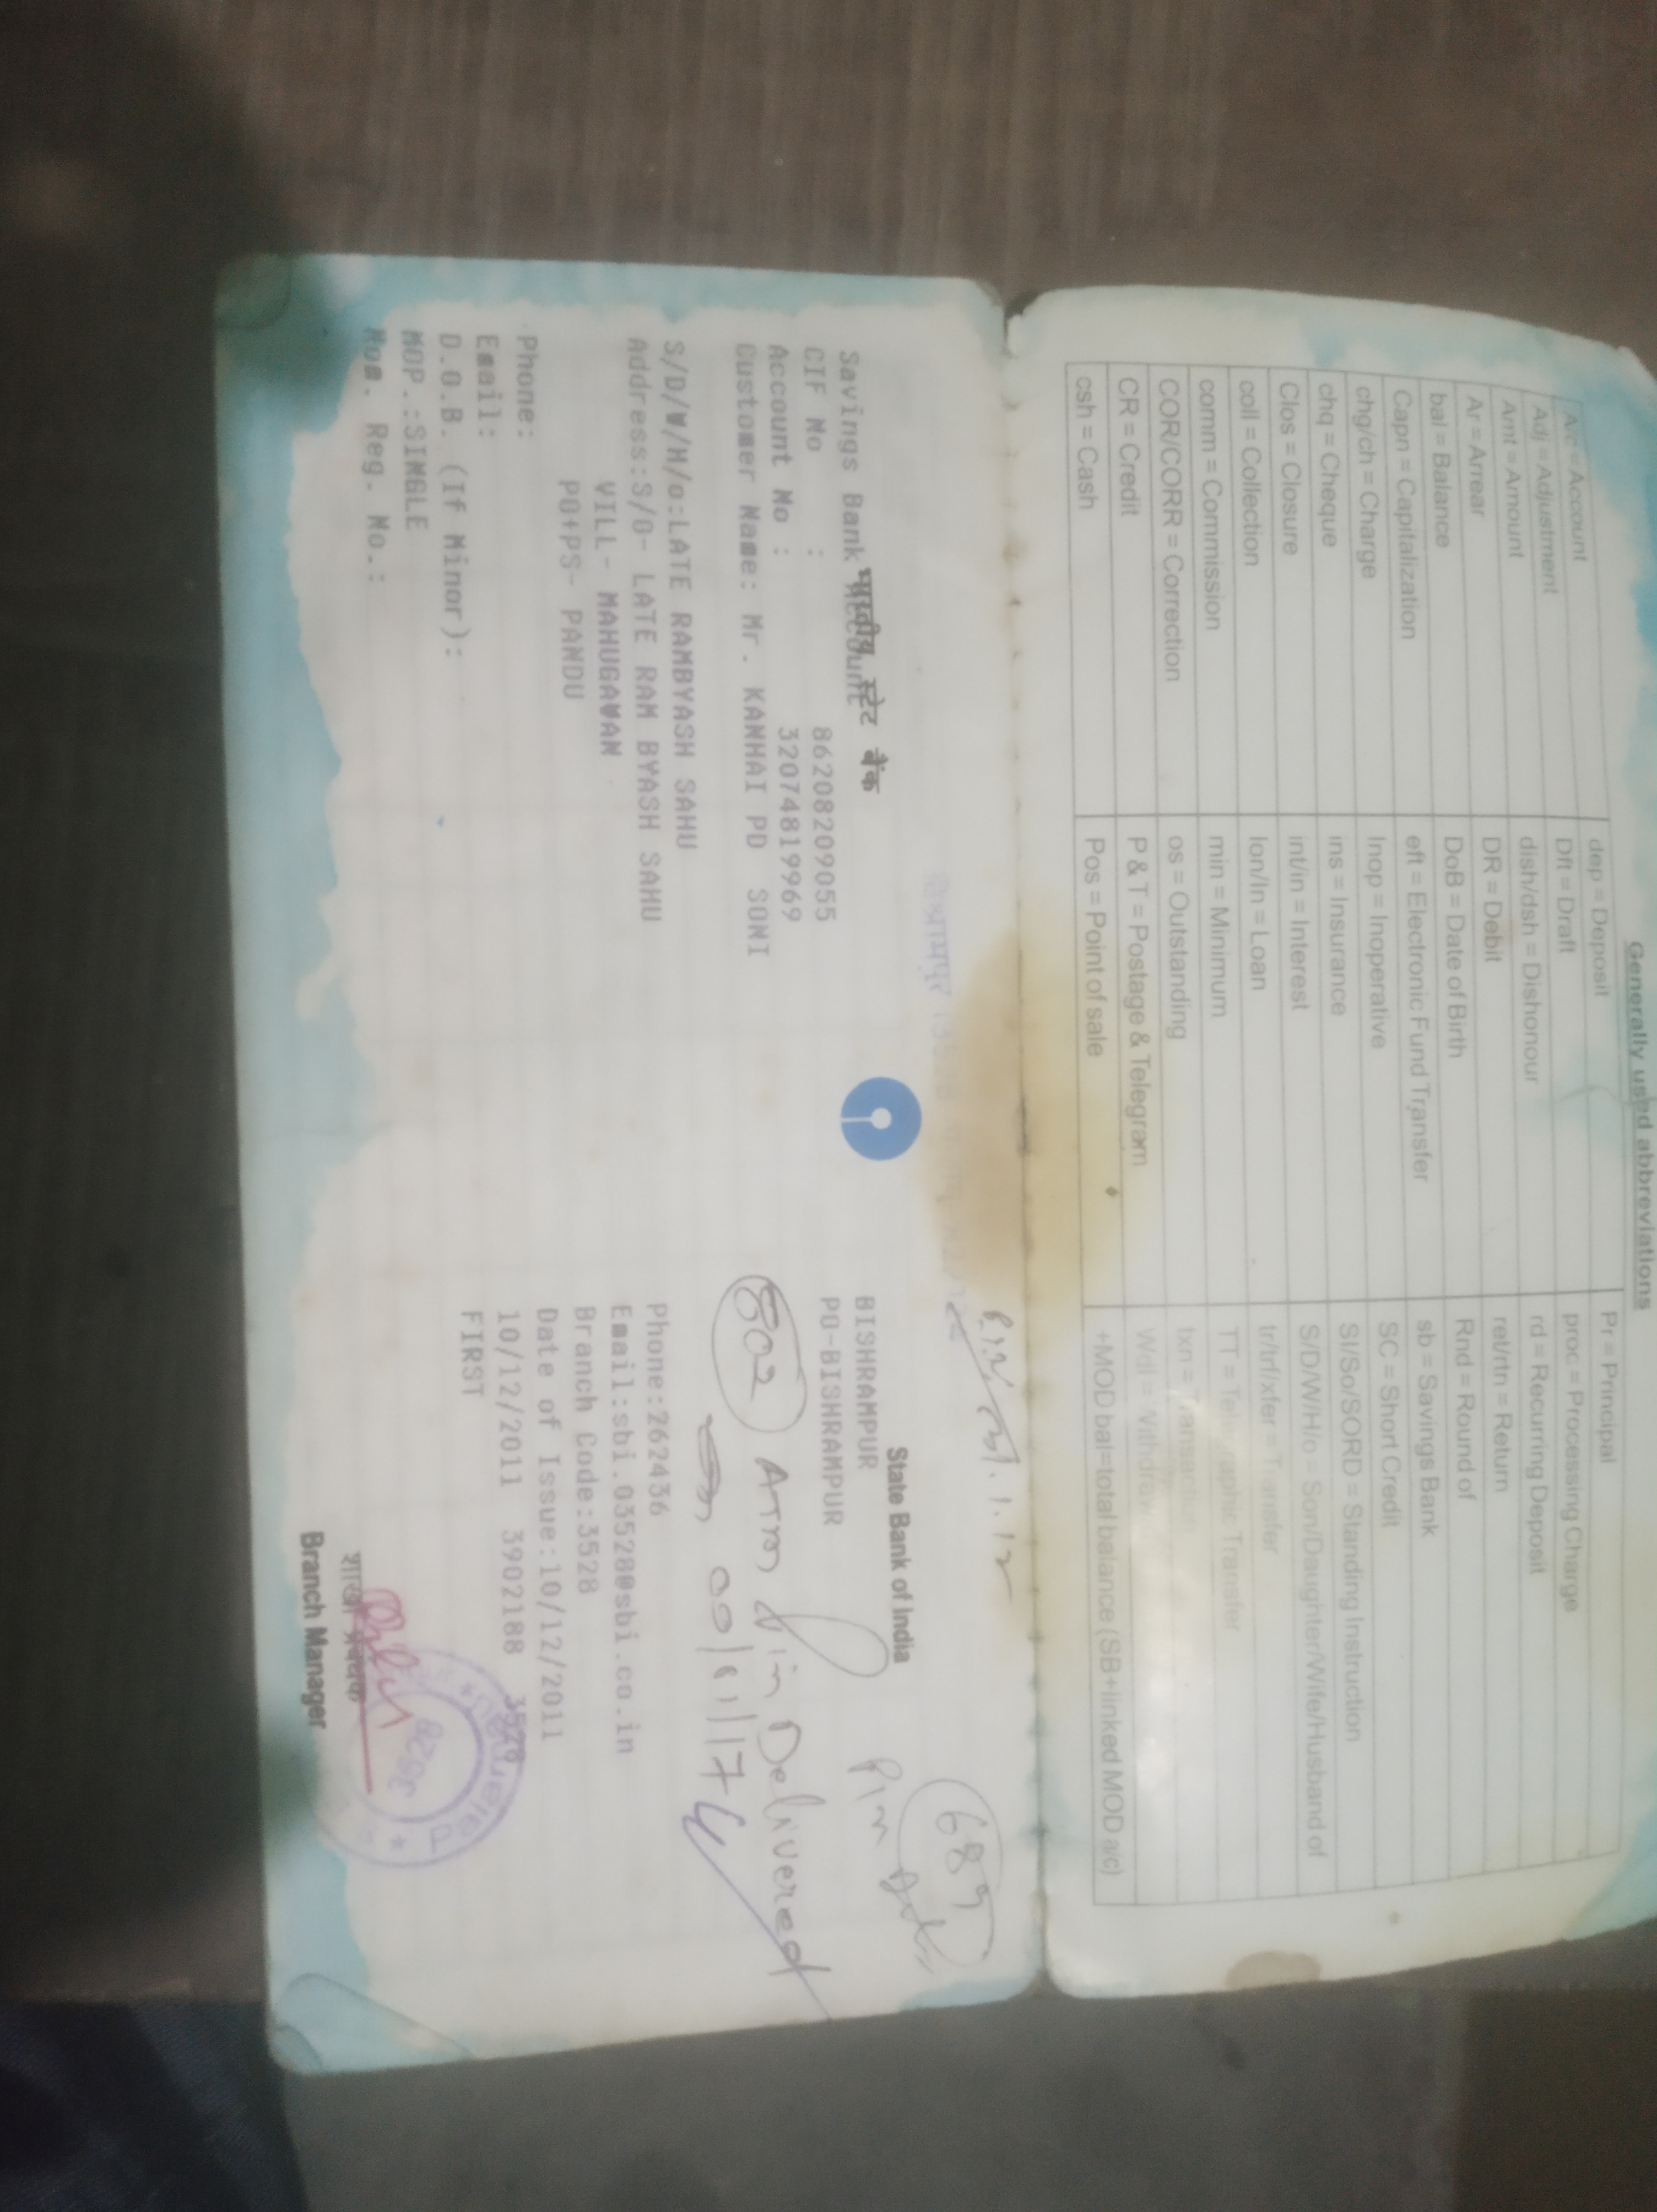 Generally used abbreviations
A/c = Account	dep = Deposit	Pr = Principal
Adj = Adjustment	Dft = Draft	proc = Processing Charge
Amt = Amount	dish/dsh = Dishonour	rd = Recurring Deposit
Ar = Arrear	DR = Debit	ret/rtn = Return
bal = Balance	DoB = Date of Birth	Rnd = Round of
Capn = Capitalization	eft = Electronic Fund Transfer	sb = Savings Bank
chg/ch = Charge	Inop = Inoperative	SC = Short Credit
chq = Cheque	ins = Insurance	SI/So/SORD = Standing Instruction
Clos = Closure	int/in = Interest	S/D/W/H/o = Son/Daughter/Wife/Husband of
coll = Collection	lon/ln = Loan	tr/trf/xfer = Transfer
comm = Commission	min = Minimum	TT = Telegraphic Transfer
COR/CORR = Correction	os = Outstanding	txn = Transaction
CR = Credit	P & T = Postage & Telegram	Wdl =
csh = Cash	Pos = Point of sale	+MOD bal=total balance (SB+linked MOD a/c)
689
Pin
भारतीय स्टेट बैंक	State Bank of India
Savings Bank Account	BISHRAMPUR
CIF No : 86208209055	PO-BISHRAMPUR
Account No : 32074819969
Customer Name: Mr. KANHAI PD SONI
802 ATM Pin Delivered
S/D/W/H/o:LATE RAMBYASH SAHU
Address:S/O- LATE RAM BYASH SAHU	Phone:262436
VILL- MAHUGAWAN	Email:sbi.03528@sbi.co.in
PO+PS- PANDU	Branch Code:3528
Phone:	Date of Issue:10/12/2011
Email:	10/12/2011 3902188 3528
D.O.B. (If Minor):	FIRST
MOP.:SINGLE
Nom. Reg. No.:
शाखा प्रबंधक
Branch Manager